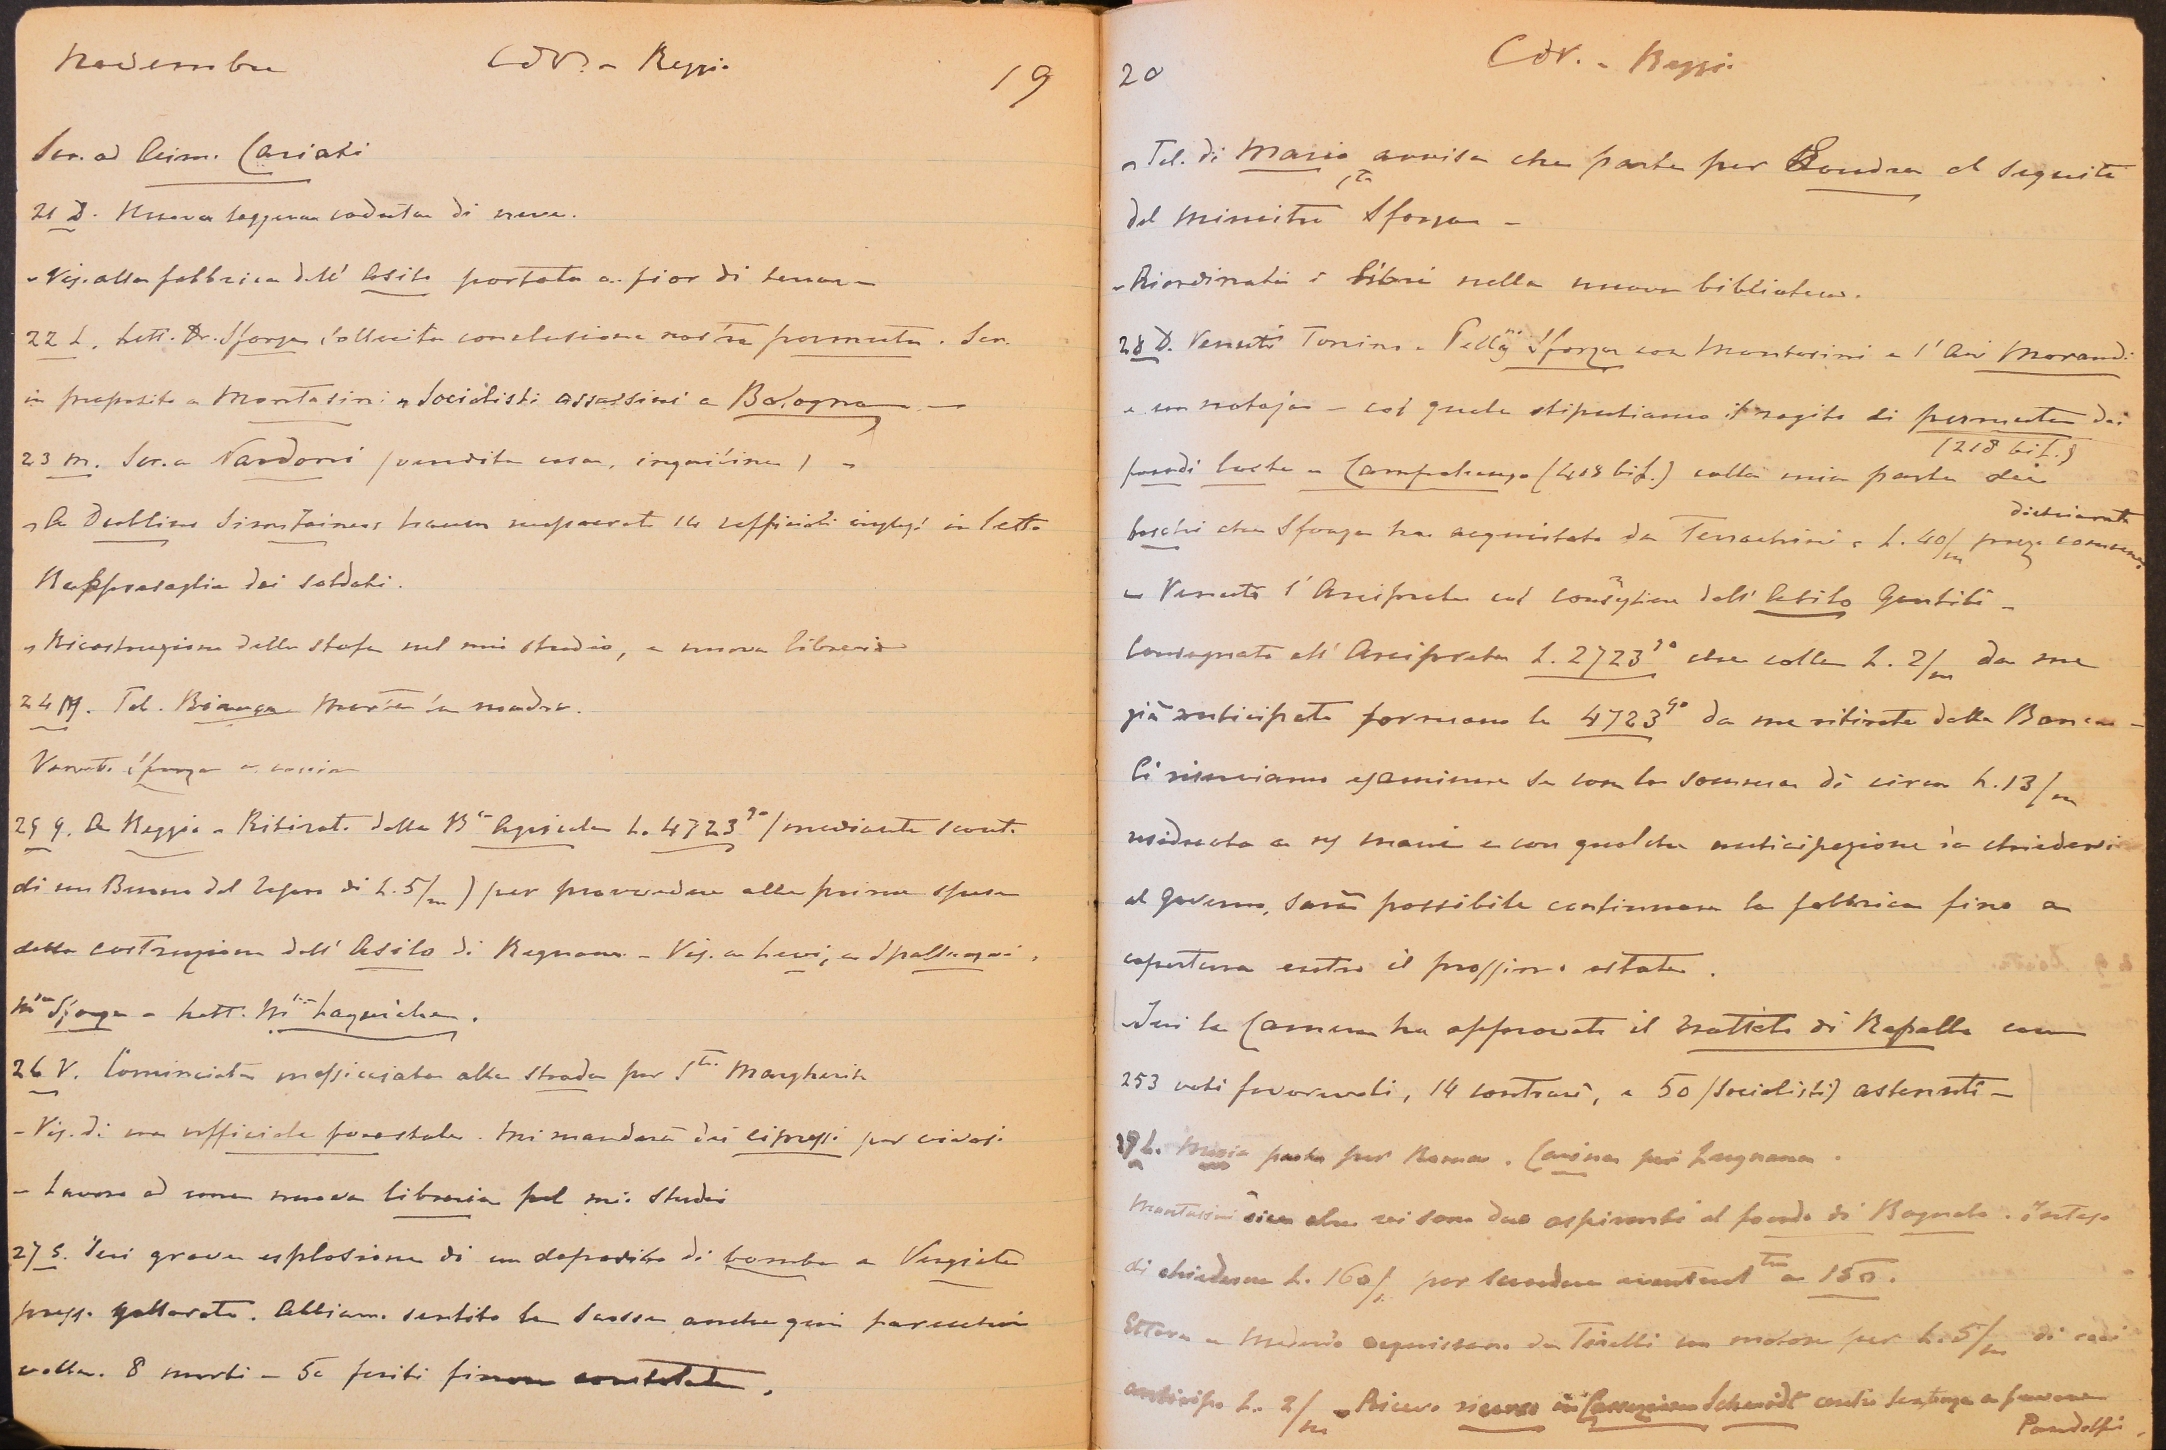 Novembre CdV. - Reggio 19
Scr. ad Aim. Cariati
21 D. Nuova leggera caduta di neve.
- Vis. alla fabbrica dell' Asilo portata a fior di terra -
22 L. Lett. Dr. Sforza sollecita conclusione nostra permuta. Scr.
in proposito a Montasini - Socialisti assassini a Bologna -
23 M. Scr. a Nardoni (vendita casa, inquilina) -
- A Dublino Sinnfainers hanno massacrato 14 ufficiali inglesi in letto
Rappresaglia dei soldati.
- Ricostruzione della stufa nel mio studio, e nuova libreria
24 M. Tel. Bianca morta la madre.
Venuto Sforza a caccia
25 G. A Reggio - Ritirato dalla B.ca Agricola L. 4723.90 (mediante scont.
di un Buono del Tesoro di L. 5/m) per provvedere alle prime spese
della costruzione dell' Asilo di Regnano - Vis. a Levi, a Spallanzani,
M.sa Sforza - Lett. M.se Laguiche.
26 V. Cominciata massicciata alla strada per S.ta Margherita
- Vis. di un ufficiale forestale. Mi manderà dei cipressi per vivai
- Lavoro ad una nuova libreria pel mio studio
27 S. Ieri grave esplosione di un deposito di bombe a Vergiate
presso Gallarate. Abbiamo sentito la scossa anche qui parecchie
volte. 8 morti - 50 feriti finora constatati.
20 CdV. - Reggio
- Tel. di Mario avvisa che parte per Londra al seguito
del Ministro Sforza -
- Riordinati i libri nella nuova biblioteca.
28 D. Venuti Tonino e Pell.no Sforza con Montasini e l' Avv. Morandi
e un notajo - col quale stipuliamo il rogito di permuta dei
(218 bif.)
fondi Costa e Campolungo (408 bif.) colla mia parte dei
dichiarato
boschi che Sforza ha acquistato da Terrachini a L. 40/m prezzo comune
- Venuto l' Arciprete col consigliere dell' Asilo Gentili -
Consegnato all' Arciprete L. 2723.90 che colle L. 2/m da me
già anticipate formano le 4723.90 da me ritirate dalla Banca -
Ci riserviamo esaminare se con la somma di circa L. 13/m
residuata a ns mani e con qualche anticipazione da chiedersi
al Governo, sarà possibile continuare la fabbrica fino a
copertura entro il prossimo estate.
- Ieri la Camera ha approvato il trattato di Rapallo con
253 voti favorevoli, 14 contrari, e 50 (socialisti) astenuti -
29 L. Maria parte per Roma. Carina per Lugnana.
Montasini dice che vi sono due aspiranti al fondo di Bagnolo. Inteso
di chiedere L. 160/ per scendere eventualte a 150.
Ettore e Medardo acquistano da Tirelli un motore per L. 5/m di cui
anticipo L. 2/m - Ricevo ricorso in Cassazione Schmidt contro sentenza a favore
Pandolfi.